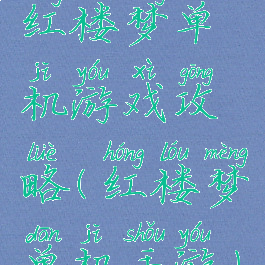 红楼梦单
jī yóu xì gōng
机游戏攻
lüè hóng lóu mèng
略(红楼梦
dān jī shǒu yóu
单机手游)